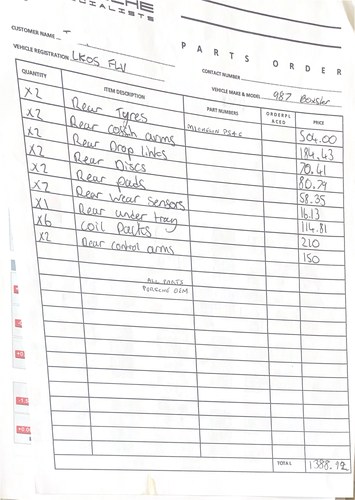 SPECIALISTS
PARTS ORDER
CUSTOMER NAME T
CONTACT NUMBER
VEHICLE REGISTRATION LK05 FLV
VEHICLE MAKE & MODEL 987 Boxster
QUANTITY ITEM DESCRIPTION PART NUMBERS ORDERPLACED PRICE
x2 Rear Tyres MICHELIN PS4 504.00
x2 Rear coffin arms 184.43
x2 Rear Drop links 70.41
x2 Rear Discs 80.79
x2 Rear pads 58.35
x2 Rear wear sensors 16.13
x1 Rear under tray 114.81
x6 coil packs 210
x2 Rear control arms 150
ALL PARTS
PORSCHE OEM
TOTAL 1388.92